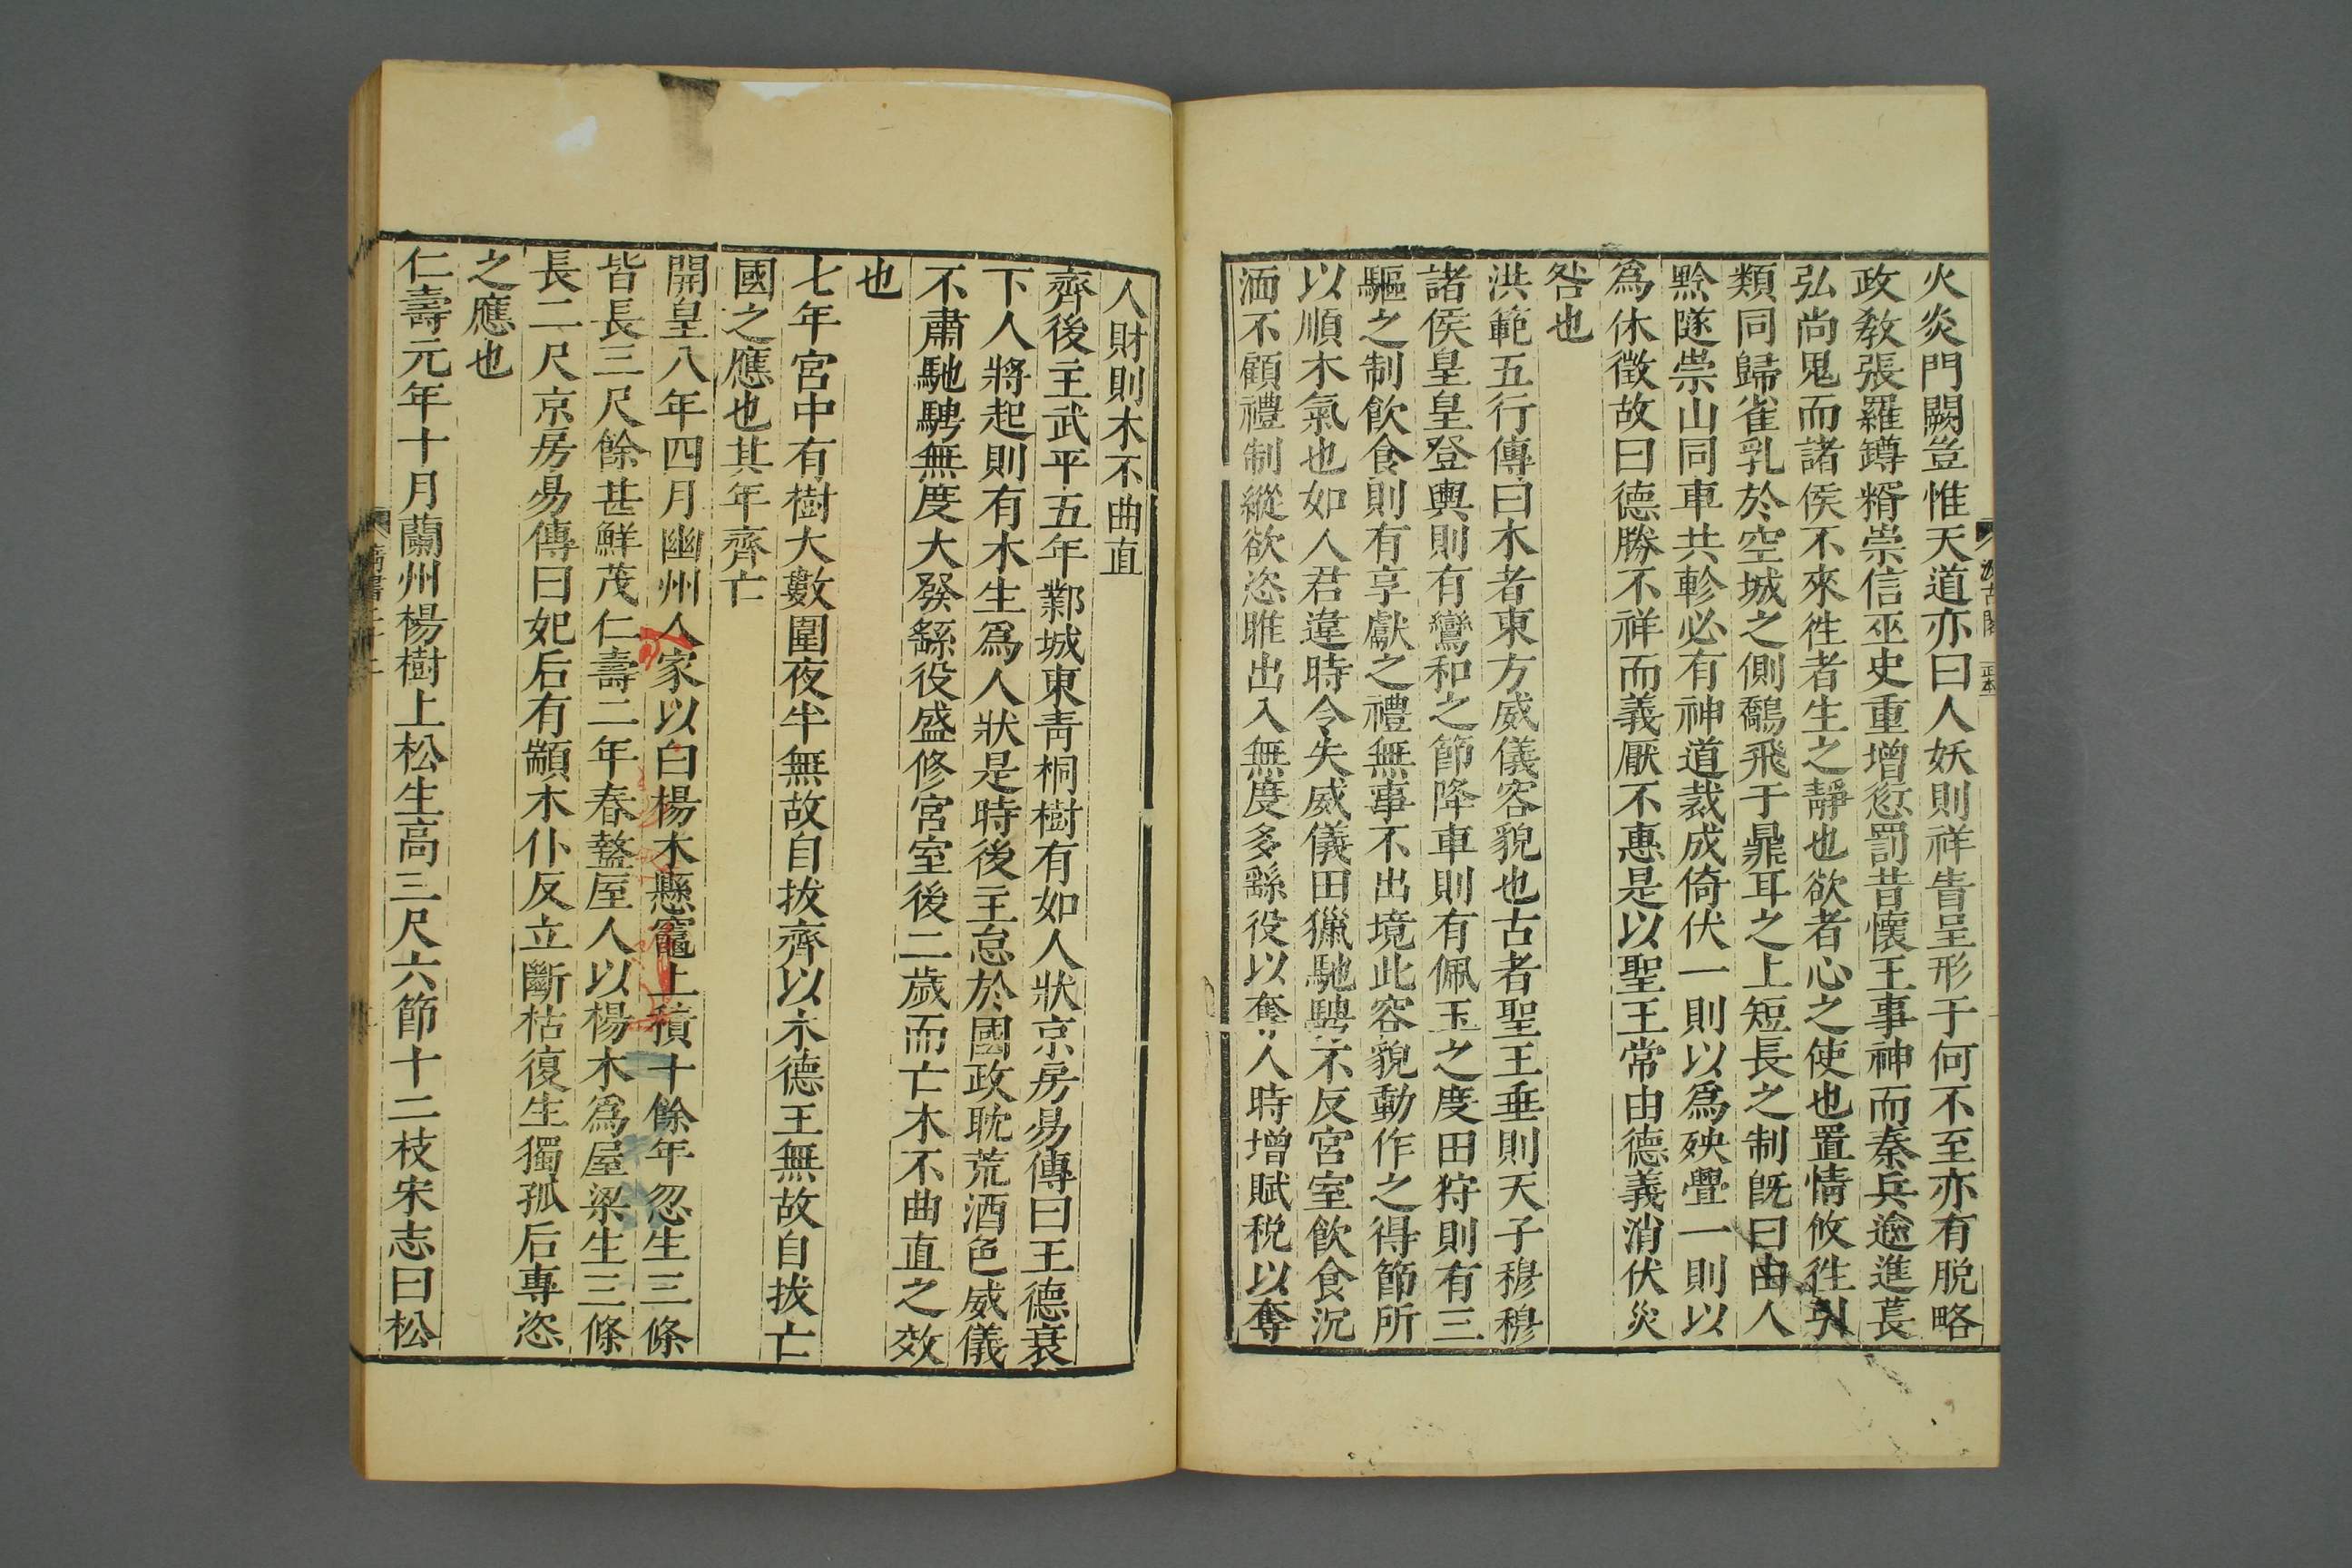 火炎門闕豈惟天道亦曰人妖則祥眚呈形于何不至亦有脱略
政敎張羅罇糈崇信巫史重增愆罰昔懷王事神而秦兵逾進萇
弘尚鬼而諸侯不來徃者生之靜也欲者心之使也置情攸徃引
類同歸雀乳於空城之側鷸飛于鼎耳之上短長之制旣曰由人
黔隧崇山同車共軫必有神道裁成倚伏一則以爲殃舋一則以
爲休徵故曰德勝不祥而義厭不惠是以聖王常由德義消伏災
咎也
洪範五行傳曰木者東方威儀容貌也古者聖王垂則天子穆穆
諸侯皇皇登輿則有鸞和之節降車則有佩玉之度田狩則有三
驅之制飮食則有享獻之禮無事不出境此容貌動作之得節所
以順木氣也如人君違時令失威儀田獵馳騁不反宮室飮食沉
湎不顧禮制縱欲恣睢出入無度多繇役以奪人時增賦税以奪
汲古閣
正本
人財則木不曲直
齊後主武平五年鄴城東靑桐樹有如人狀京房易傳曰王德衰
下人將起則有木生爲人狀是時後主怠於國政耽荒酒色威儀
不肅馳騁無度大發繇役盛修宮室後二歲而亡木不曲直之效
也
七年宮中有樹大數圍夜半無故自拔齊以木德王無故自拔亡
國之應也其年齊亡
開皇八年四月幽州人家以白楊木懸竈上積十餘年忽生三條
皆長三尺餘甚鮮茂仁壽二年春盩厔人以楊木爲屋梁生三條
長二尺京房易傳曰妃后有顓木仆反立斷枯復生獨孤后專恣
之應也
仁壽元年十月蘭州楊樹上松生高三尺六節十二枝宋志曰松